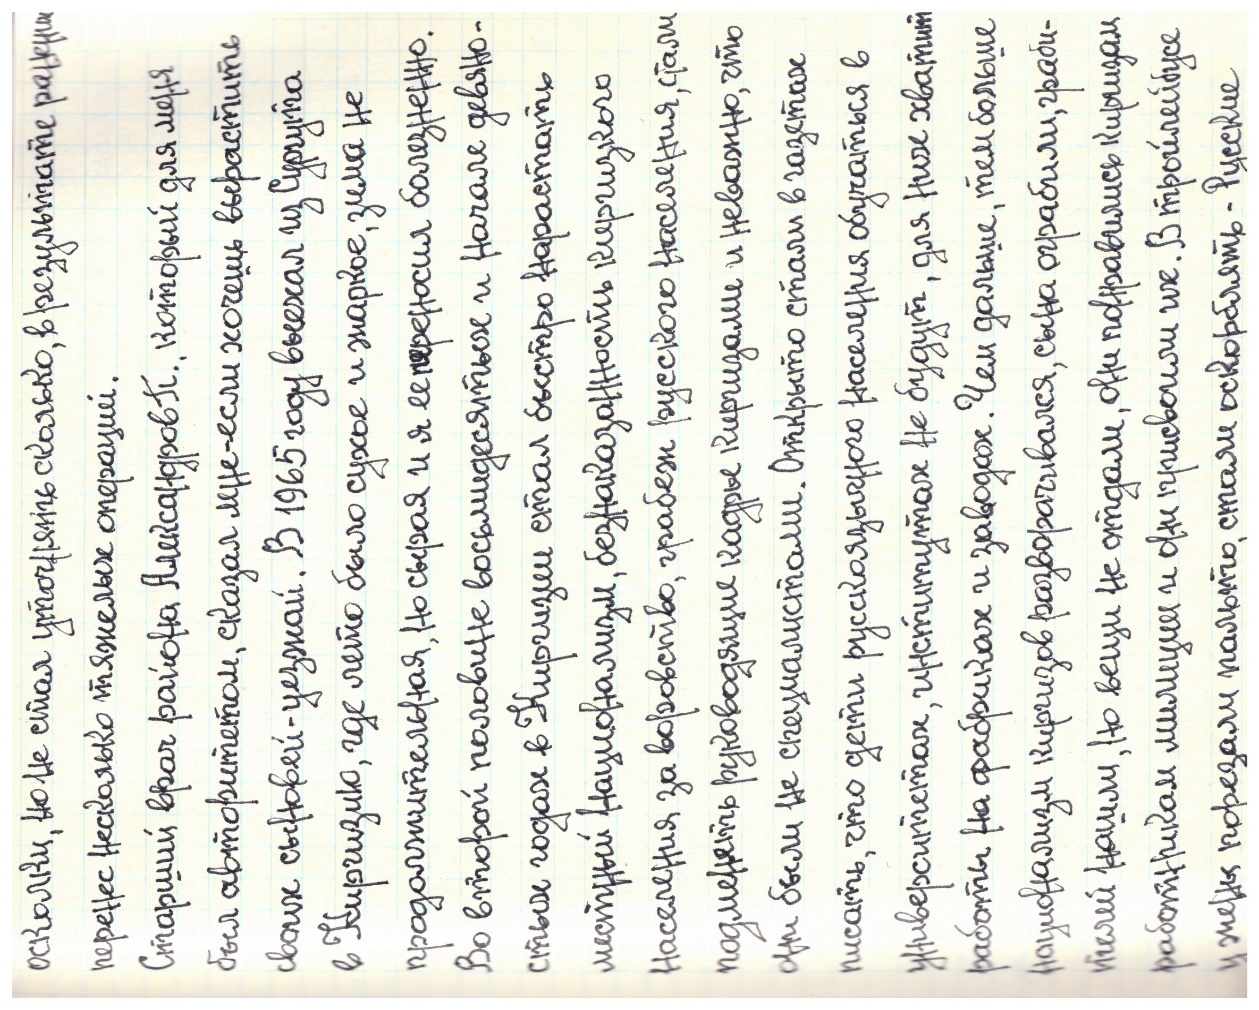 осколки, но не стал уточнять сколько, в результате ранения
перенес несколько тяжелых операций.
Старший врач района Александров П. который для меня
был авторитетом, сказал мне-если хочешь вырастить
своих сыновей-уезжай. В 1965 году выехал из Сургута
в Киргизию, где лето было сухое и жаркое, зима не
продолжительная, но сырая и я ее переносил болезненно.
Во второй половине восьмидесятых и начале девяно-
стых годах в Киргизии стал быстро нарастать
местный национализм, безнаказанность киргизкого
населения за воровство, грабеж русского населения, стали
подменять руководящие кадры киргизами и неважно, что
они были не специалистами. Открыто стали в газетах
писать, что дети русскоязычного населения обучаться в
университетах, институтах не будут, для них хватит
работы на фабриках и заводах. Чем дальше, тем больше
национализм киргизов разворачивался, сына ограбили, граби-
телей нашли, но вещи не отдали, они понравились киргизам
работникам милиции и они присвоили их. В троллейбусе
у жены порезали пальто, стали оскорблять - Русские